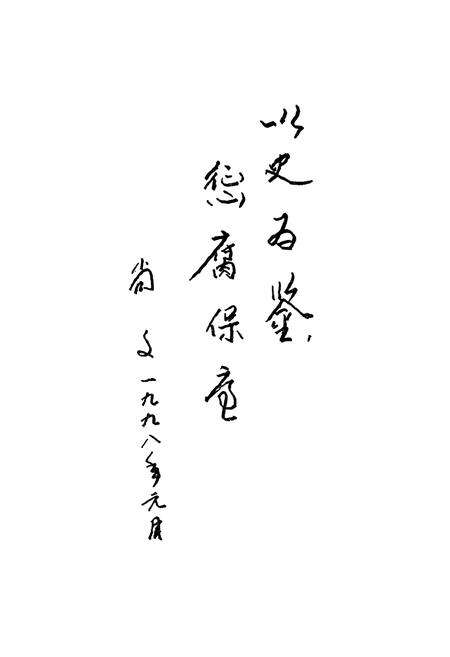 以史为鉴，
惩腐保廉
尚文
一九九八年元月